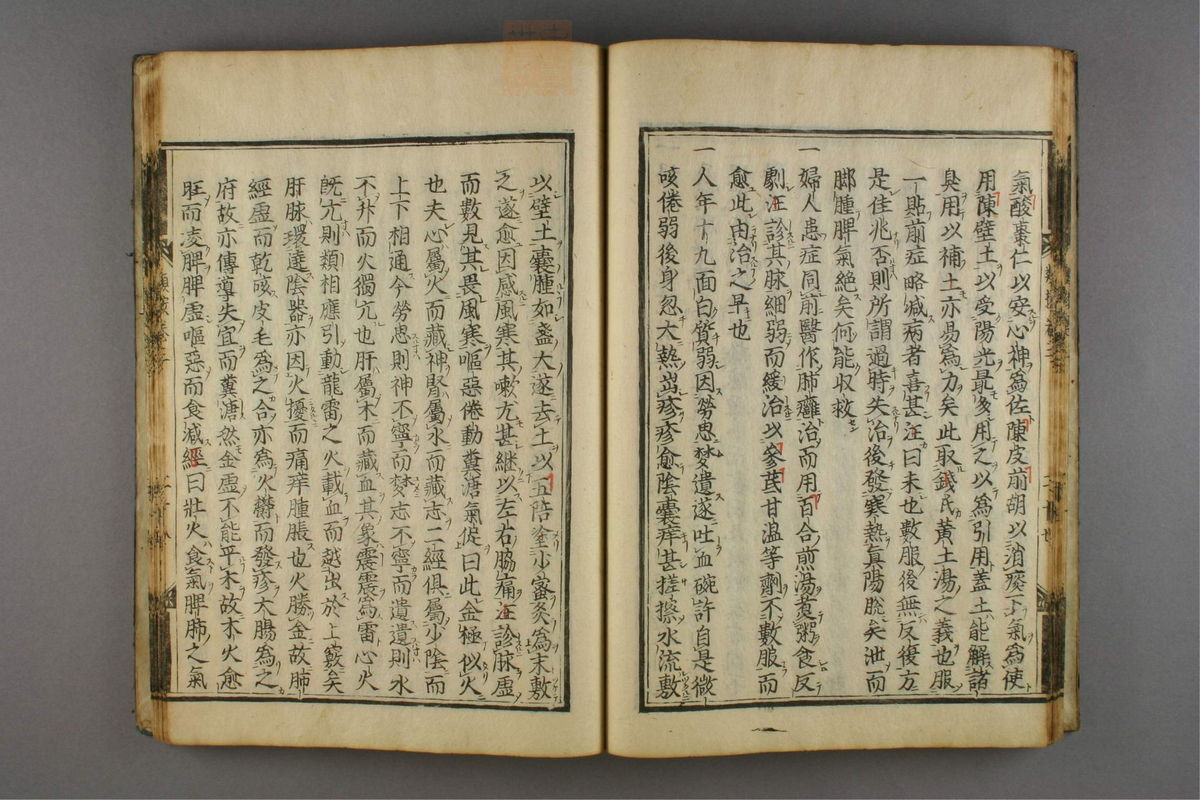 氣酸棗仁以安心神爲佐陳皮前胡以消痰下氣爲使
用陳壁土以受陽光最多用之以爲引用蓋土能解諸
臭用以補土亦易爲力矣此取錢氏黃土湯之義也服
一貼前症略減病者喜甚汪曰未也數服後無反復方
是佳兆否則所謂過時失治後發寒熱真陽脫矣泄而
脚腫脾氣絕矣何能收救
一婦人患症同前醫作肺癰治而用百合煎湯煮粥食反
劇汪診其脉細弱而緩治以參芪甘温等劑不數服而
愈此由治之早也
一人年十九面白質弱因勞思夢遺遂吐血碗許自是微
咳倦弱後身忽大熱出疹疹愈陰囊痒甚搓擦水流敷
以壁土囊腫如盞大遂去土以五陪塗少蜜炙爲末敷
之遂愈因感風寒其嗽尤甚繼以左右脇痛汪診脉虛
而數見其畏風寒嘔惡倦動糞溏氣促曰此金極似火
也夫心屬火而藏神腎屬水而藏志二經俱屬少陰而
上下相通今勞思則神不寧而夢志不寧而遺遺則水
不升而火獨亢也肝屬木而藏血其象震震爲雷心火
既亢則類相應引動龍雷之火載血而越出於上竅矣
肝脉環遶陰器亦因火擾而痛痒腫脹也火勝金故肺
經虛而乾咳皮毛爲之合亦爲火欝而發疹大腸爲之
府故亦傳導失宜而糞溏然金虛不能平木故木火愈
旺而凌脾脾虛嘔惡而食减經曰壯火食氣脾肺之氣